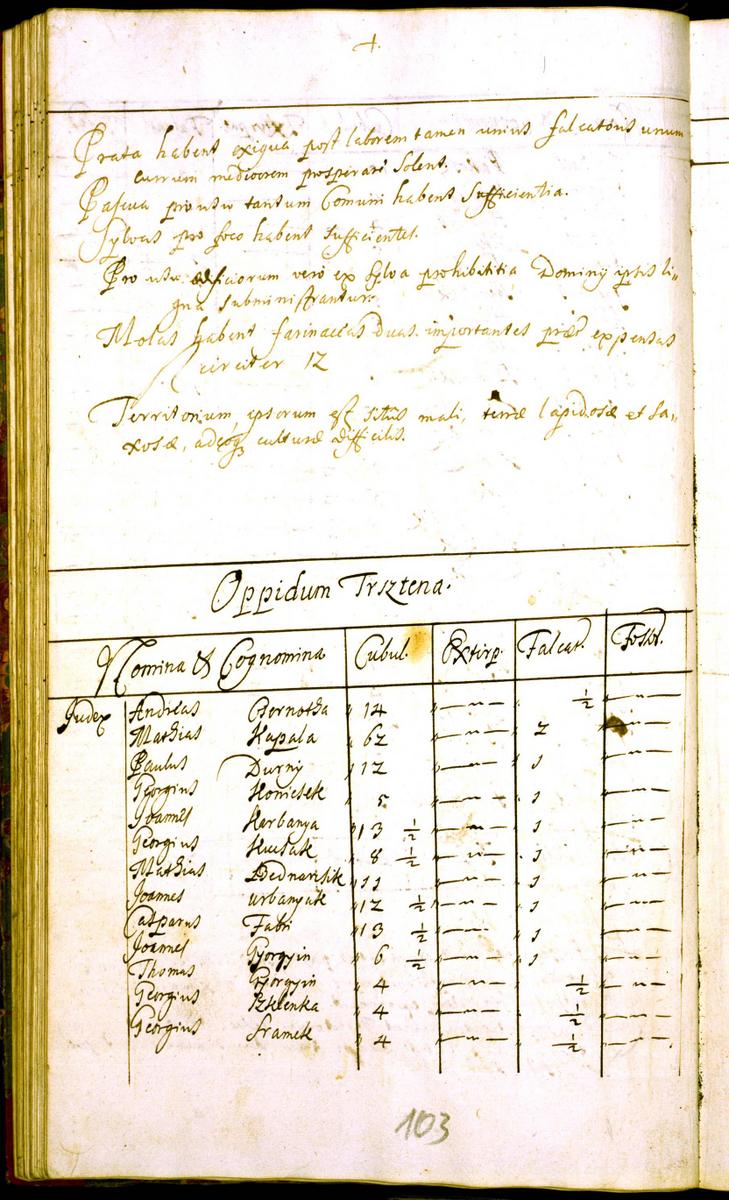 4.
Prata habent exigua post laborem tamen unius falcatoris unum
currum mediocrem prosperari solent.
Pascua pro usu tantum Comuni habent sufficientia.
Sylvas pro foco habent sufficientes.
Pro usu ædificiorum vero ex sylva prohibititia Dominij ipsis li-
gna subministrantur.
Molas habent farinaceas duas importantes præter expensas
circiter 12
Territorium ipsorum est situs mali, terræ lapidosæ et sa-
xosæ, adeoq culturæ difficilis.
Oppidum Trsztena.
Nomina & Cognomina Cubul. Extirp. Falcat. Fossor.
Judex Andreas 14 — " — ½ — " —
Mathias Hapala 62 — " — 2 — " —
Paulus Durny 12 — " — 1 — " —
Georgius 5 — " — 1 — " —
Joannes Harbanya 13 ½ — " — 1 — " —
Georgius 8 ½ — " — 1 — " —
Mathias Bednarcsik 11 — " — 1 — " —
Joannes urbanyak 12 ½ — " — 1 — " —
Casparus Fabri 13 ½ — " — 1 — " —
Joannes Gyorgyin 6 ½ — " — 1 — " —
Thomas Gyorgyin 4 — " — ½ — " —
Georgius Szklenka 4 — " — ½ — " —
Georgius sramek 4 — " — ½ — " —
103